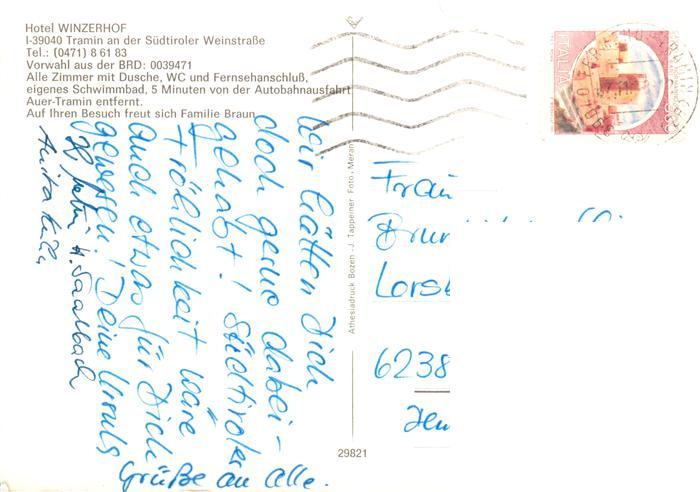 Hotel WINZERHOF
I-39040 Tramin an der Südtiroler Weinstraße
Tel.: (0471) 8 61 83
Vorwahl aus der BRD: 0039471
Alle Zimmer mit Dusche, WC und Fernsehanschluß,
eigenes Schwimmbad, 5 Minuten von der Autobahnausfahrt
Auer-Tramin entfernt.
Auf Ihren Besuch freut sich Familie Braun
Wir hätten Dich
doch gerne dabei-
gehabt! Südtiroler
Fröhlichkeit wäre
auch etwas für Dich
gewesen! Deine Ursula
H. Saalbach
Anita
Grüße an alle.
Athesiadruck Bozen - J. Tappeiner Foto, Meran
29821
ITALIA
Frau
6238